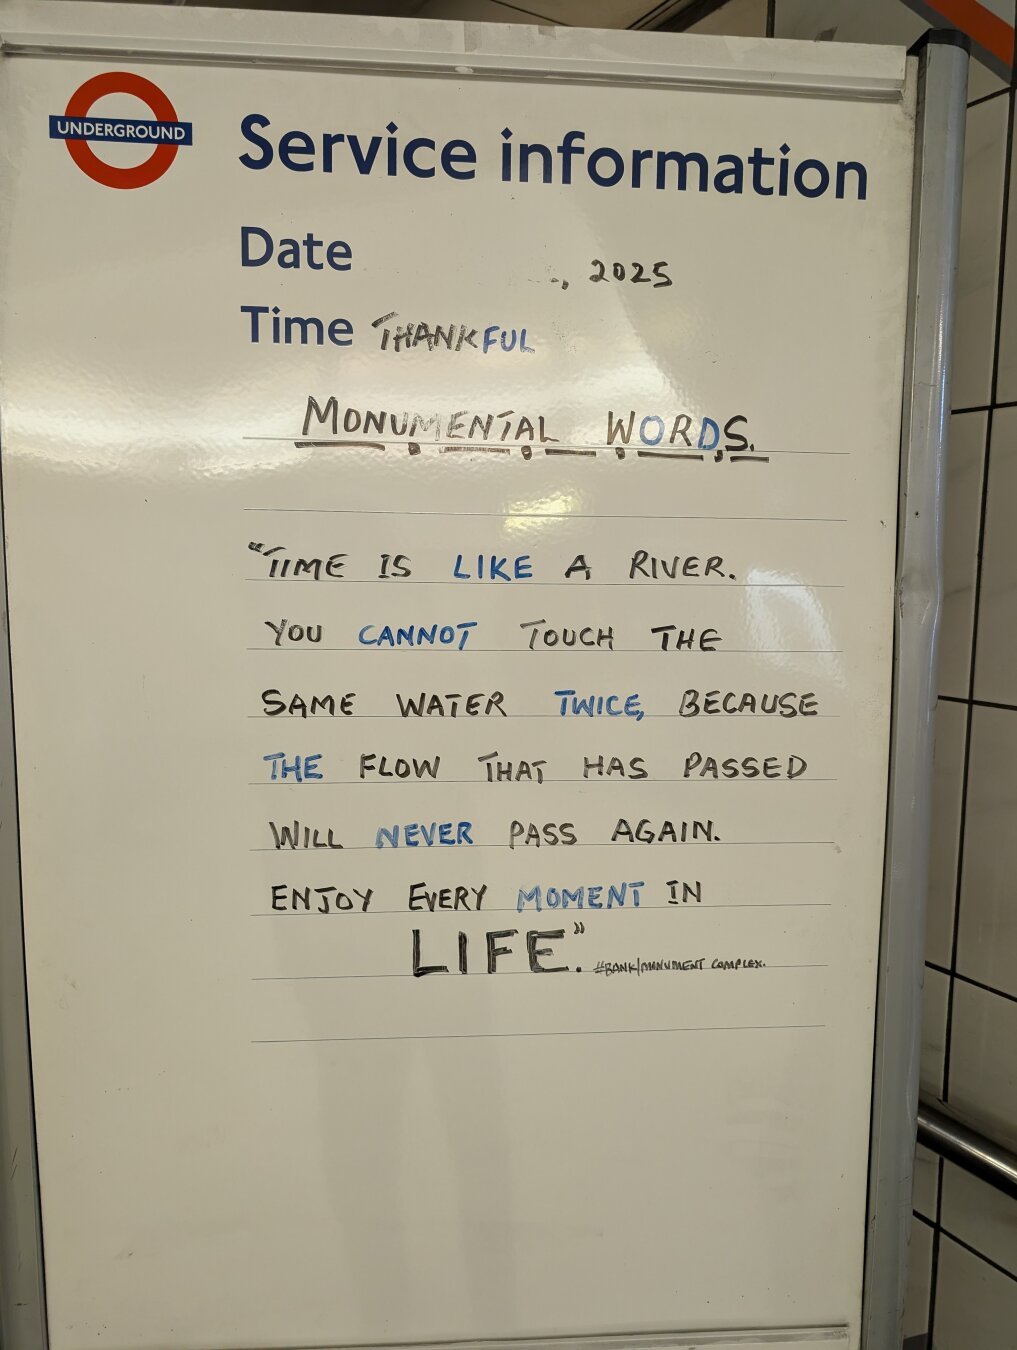 UNDERGROUND
Service information
Date , 2025
Time THANKFUL
MONUMENTAL WORDS.
"TIME IS LIKE A RIVER.
YOU CANNOT TOUCH THE
SAME WATER TWICE, BECAUSE
THE FLOW THAT HAS PASSED
WILL NEVER PASS AGAIN.
ENJOY EVERY MOMENT IN
LIFE." #BANK/MONUMENT COMPLEX.